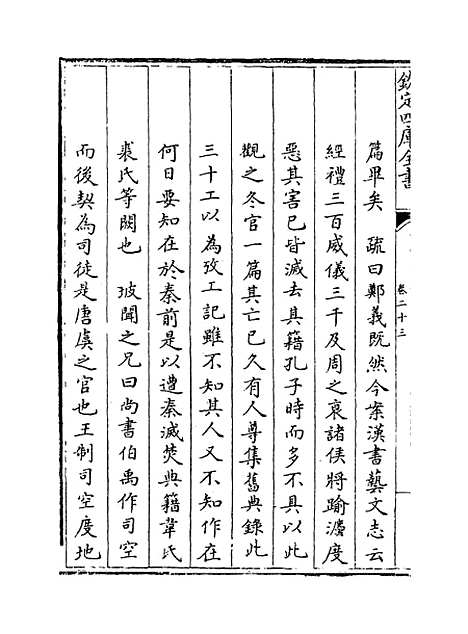 欽定四庫全書
卷二十三
篇畢矣　疏曰鄭義既然今案漢書藝文志云
經禮三百威儀三千及周之衰諸侯將踰濃度
惡其害己皆滅去其籍孔子時而多不具以此
觀之冬官一篇其亡已久有人尊集舊典錄此
三十工以為攷工記雖不知其人又不知作在
何日要知在於秦前是以遭秦滅焚典籍韋氏
裘氏等闕也　彼聞之兄曰尚書伯禹作司空
而後契為司徒是唐虞之官也王制司空度地